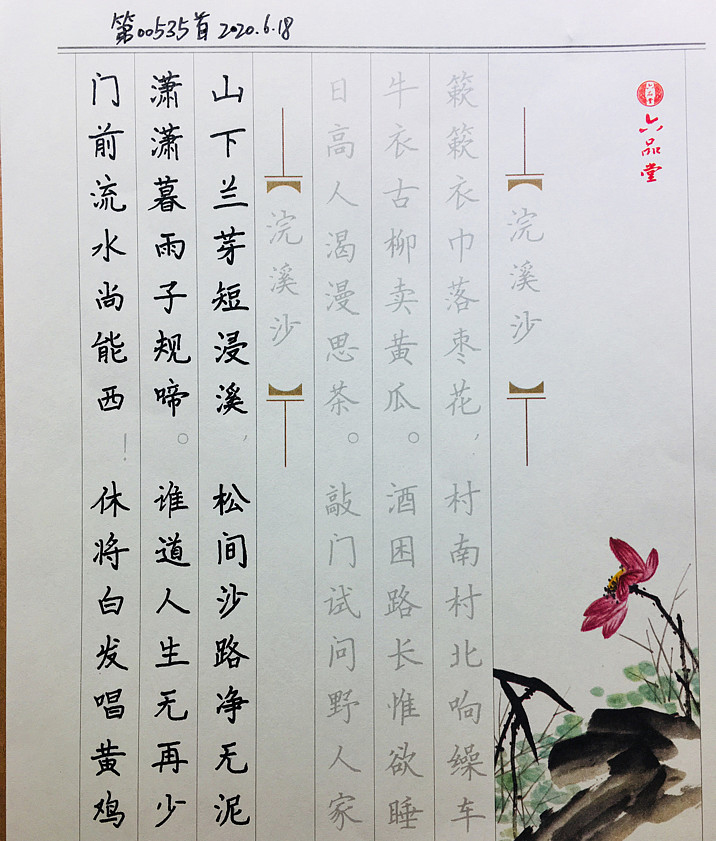 第00535首 2020.6.18
六品堂
六品堂
浣溪沙
簌簌衣巾落枣花，村南村北响缲车
牛衣古柳卖黄瓜。酒困路长惟欲睡
日高人渴漫思茶。敲门试问野人家
浣溪沙
山下兰芽短浸溪，松间沙路净无泥
潇潇暮雨子规啼。谁道人生无再少
门前流水尚能西！休将白发唱黄鸡